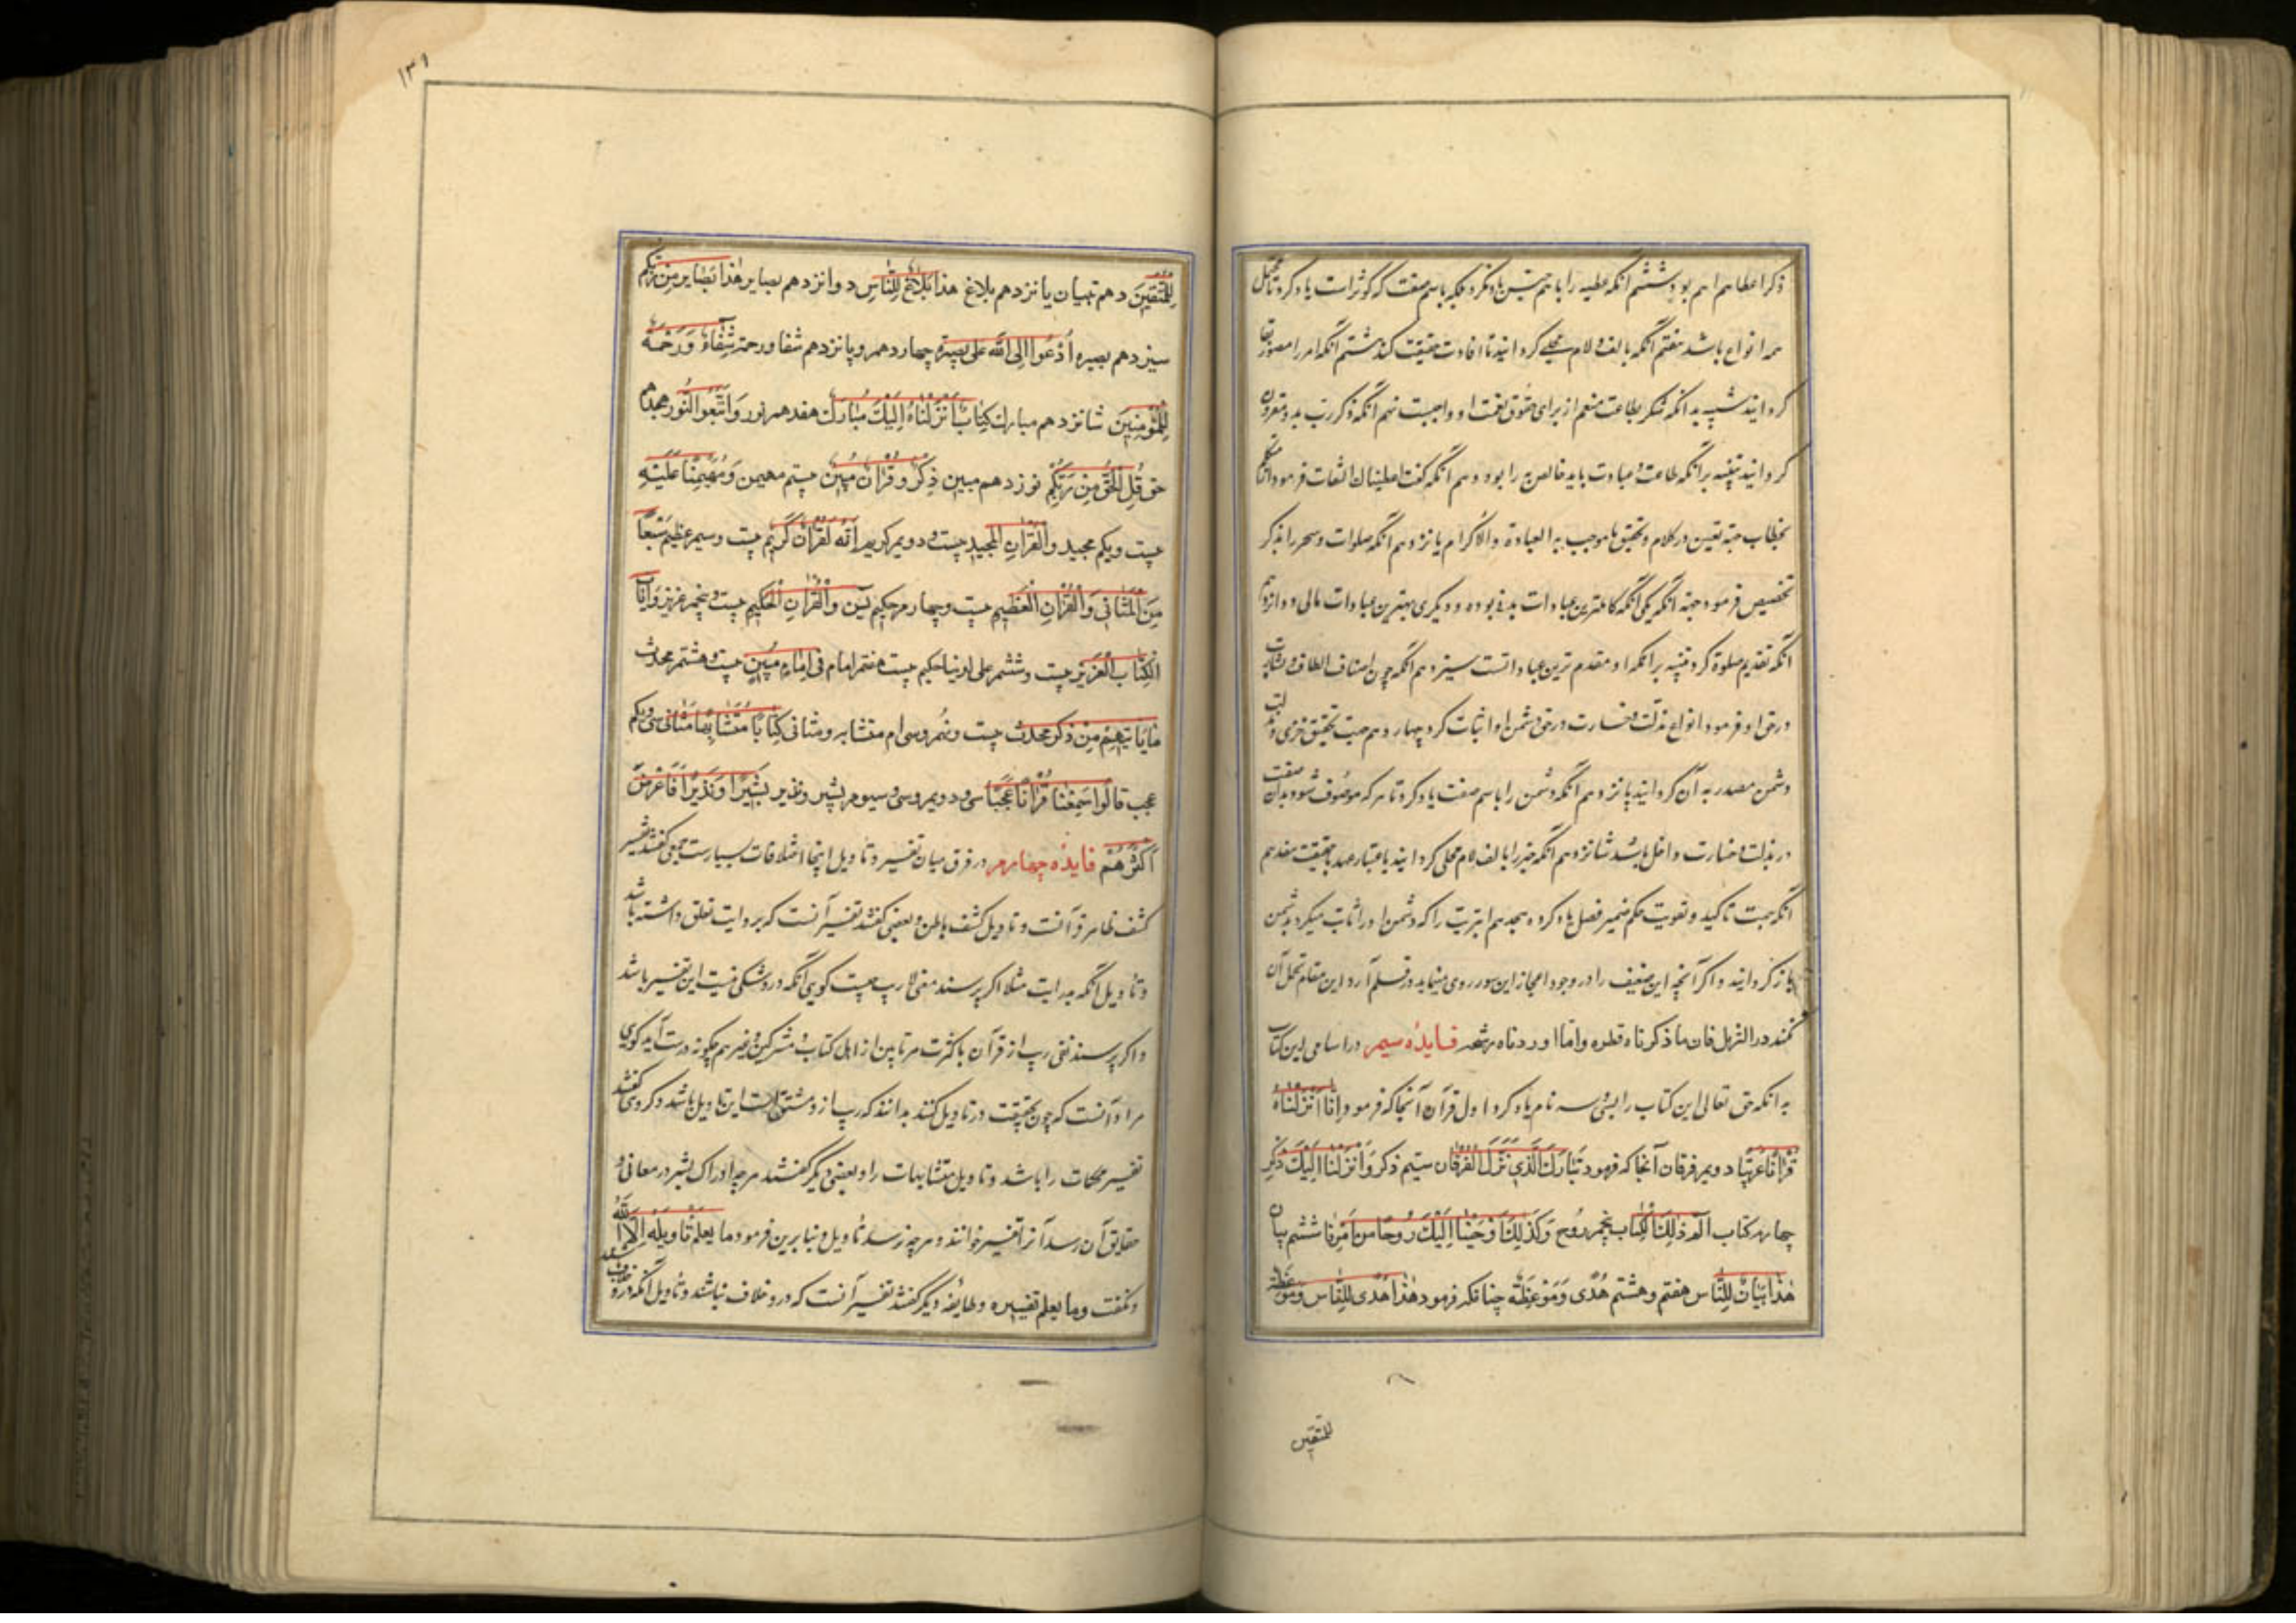 ذکر اعطا هم اهم بود ششم انکه عطیه را با هم جنس یاد نکرد بلکه باسم صفت که کوثر است یاد کرد تا محتمل
همه انواع باشد هفتم انکه بالف و لام محلی کردانید تا افادت حقیقت کند هشتم انکه امر را مصدر بفا
کردانید تنبیه بر انکه شکر بطاعت منعم از برای حقوق نعمت او واجبست نهم انکه ذکر رب بدو مقرون
کردانید تنبیه بر انکه طاعت و عبادت باید خالص او را بود دهم انکه کفت اعطیناك التفات فرمود از متکلم
بخطاب جهة تفنن در کلام و تحقیق ما موجب به العبادة والاکرام یازدهم انکه صلوات و نحر را بذکر
تخصیص فرمود جهة انکه یکی انکه کاملترین عبادات بدنی بوده و دیکری بهترین عبادات مالی دوازدهم
انکه تقدیم صلوة کرد تنبیه بر انکه او مقدم ترین عباداتست سیزدهم انکه چون اصناف الطاف و بشارت
در حق او فرمود انواع مذلت و خسارت در حق دشمن او اثبات کرد چهاردهم جهت تحقیق خزی و مذلت
دشمن مصدر به ان کردانید پانزدهم انکه دشمن را باسم صفت یاد کرد تا هر که موصوف شود بدان صفت
در مذلت و خسارت داخل باشد شانزدهم انکه خبر را بالف لام محلی کردانید باعتبار عهد یا حقیقت هفدهم
انکه بجهت تاکید و تقویت حکم ضمیر فصل یاد کرد هجدهم ابتریت را که دشمن او را اثبات میکرد بدشمن
باز کردانید و اکر آنچه این ضعیف را در وجود اعجاز این سوره روی مینماید در قلم آرد این مقام تحمل آن
نکند در النزیل فان ما ذکرناه قطره واما اوردناه رشحه فایده سیم در اسامی این کتاب
بدانکه حق تعالی این کتاب را بسی و سه نام یاد کرد اول قرآن آنجا که فرمود اِنّا اَنْزَلْناهُ
قُرْآناً عَرَبِیّاً دویم فرقان آنجا که فرمود تَبارَكَ الَّذِي نَزَّلَ الْفُرْقانَ سیم ذکر وَاَنْزَلْنا اِلَیْكَ الذِّكْرَ
چهارم کتاب الم ذلِكَ الْكِتاب پنجم روح وَكَذلِكَ اَوْحَیْنا اِلَیْكَ رُوحاً مِنْ اَمْرِنا ششم بیان
هذا بَیانٌ لِلنّاسِ هفتم و هشتم هُدًی وَمَوْعِظَة چنانکه فرمود هٰذا هُدًی لِلنّاسِ وَمَوْعِظَة
للمتقین
۱۳۱
لِلْمُتَّقِینَ دهم تبیان یازدهم بلاغ هذا بَلاغٌ لِلنّاسِ دوازدهم بصایر هٰذا بَصایر مِنْ رَبِّكُم
سیزدهم بصیره اُدْعُوا اِلَی اللّه عَلی بَصِیرَةٍ چهاردهم و پانزدهم شفا و رحمة شِفاءٌ وَرَحْمَةٌ
لِلْمُؤْمِنِینَ شانزدهم مبارك كِتابٌ اَنْزَلْناهُ اِلَیْكَ مُبارَكٌ هفدهم نور وَاتَّبَعُوا النُّورَ هجدهم
حق قُلِ الْحَقُّ مِنْ رَبِّكُمْ نوزدهم مبین ذِكْرٌ وَقُرْآنٌ مُبِینٌ بیستم مهیمن وَمُهَیْمِناً عَلَیْهِ
بیست و یکم مجید وَالْقُرْآنِ الْمَجِیدِ بیست و دویم کریم اِنَّهُ لَقُرْآنٌ كَرِیمٌ بیست و سیم عظیم سَبْعاً
مِنَ الْمَثانِي وَالْقُرْآنَ الْعَظِیمَ بیست و چهارم حکیم یس وَالْقُرْآنِ الْحَكِیمِ بیست و پنجم عزیز وَاِنَّهُ
الْكِتابُ الْعَزِیز بیست و ششم علی لدینا حکیم بیست هفتم امام فِی اِمامٍ مُبِینٍ بیست و هشتم محدث
مایَاتیهِمْ مِنْ ذِكْرٍ مُحْدَث بیست و نهم و سی ام متشابه و مثانی كِتاباً مُتَشابِهاً مَثانِي سی و یکم
عجب قالُوا سَمِعْنا قُرْآناً عَجَباً سی و دویم و سی و سیوم بشیر و نذیر بَشِیراً وَنَذِیراً فَاَعْرَضَ
اَكْثَرُهُمْ فایده چهارم در فرق میان تفسیر و تاویل اینجا اختلافات بسیارست جمعی کفتند تفسیر
کشف ظاهر قرآنست و تاویل کشف باطن و بعضی کفتند تفسیر آنست که بروایت تعلق داشته باشد
و تاویل آنکه بدرایت مثلا اکر پرسند معنی لا ریب چیست کویی آنکه درو شکی نیست این تفسیر باشد
و اکر پرسند نفی ریب از قرآن با کثرت مرتابین از اهل کتاب و مشرکین و غیرهم چکونه درست آید کویی
مراد آنست که چون بحقیقت در تاویل کنند بدانند که ریب ازو منتفی است این تاویل باشد و کروهی کفتند
تفسیر محکمات را باشد و تاویل متشابهات را و بعضی دیکر کفتند هر چه ادراك بشر در معانی و
حقایق آن رسد آنرا تفسیر خوانند و هر چه نرسد تاویل و بنا برین فرمود وما یعلم تَاویلَهُ اِلَّا اللّٰه
و نکفت وما یعلم تفسیره و طایفه دیکر کفتند تفسیر آنست که درو خلاف نباشد و تاویل آنکه درو خلاف باشد